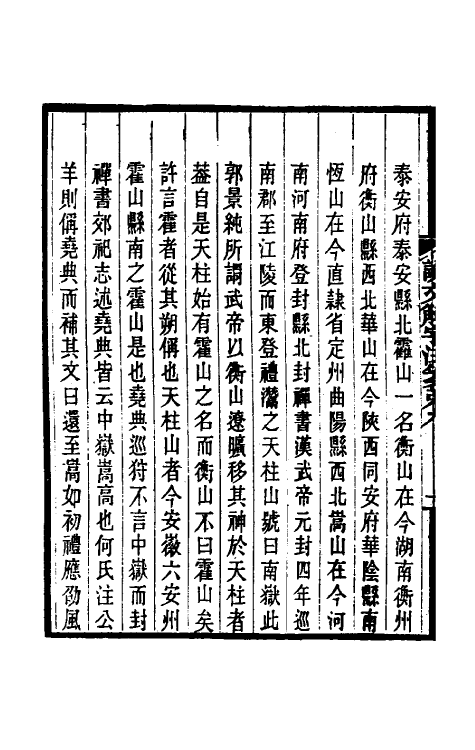 泰安府泰安縣北霍山一名衡山在今湖南衡州
府衡山縣西北華山在今陜西同安府華陰縣南
恆山在今直隸省定州曲陽縣西北嵩山在今河
南河南府登封縣北封禪書漢武帝元封四年巡
南郡至江陵而東登禮灊之天柱山號曰南嶽此
郭景純所謂武帝以衡山遼曠移其神於天柱者
葢自是天柱始有霍山之名而衡山不曰霍山矣
許言霍者從其朔偁也天柱山者今安徽六安州
霍山縣南之霍山是也堯典巡狩不言中嶽而封
禪書郊祀志述堯典皆云中嶽嵩高也何氏注公
羊則偁堯典而補其文曰還至嵩如初禮應劭風